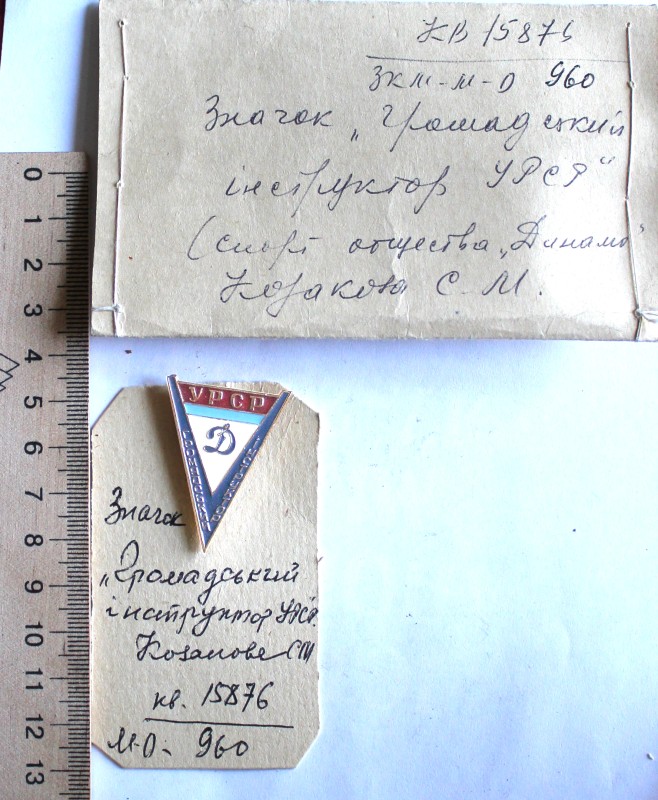 КВ 15876
ЗКМ-М-О 960
Значок „Громадський
інструктор УРСР"
(спорт общества „Динамо"
Козакова С. М.
0
1
2
3
4
5
6
7
8
9
10
11
12
13
УРСР
Д
ГРОМАДСЬКИЙ
ІНСТРУКТОР
Значок
„Громадський
інструктор УРСР.
Козакове СМ
кв. 15876
М-О- 960